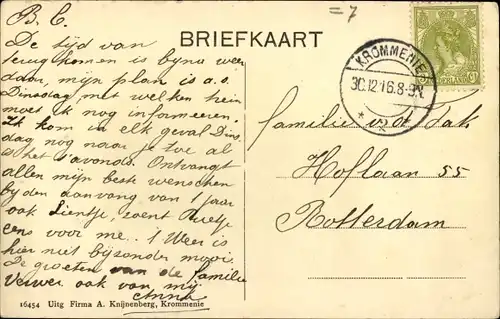 = 7
B.C.
BRIEFKAART
De tijd van
terugkomen is byna weer
daar, mijn plan is a.s.
Dinsdag, met welken trein
moet ik nog informeeren.
Ik kom in elk geval Dins
dag nog naar je toe al
is het s'avonds. Ontvangt
allen mijn beste wenschen
bij den aanvang van 't jaar
ook Lientje, zoent
eens voor me.. 't Weer is
hier niet bijzonder mooi.
De groeten van de familie
Verwer ook van mij
Anna
KROMMENIE
30.12.16.8-9V.
NEDERLAND
familie v.d. Tak
Hoflaan 55
Rotterdam
16454 Uitg Firma A. Knijnenberg, Krommenie